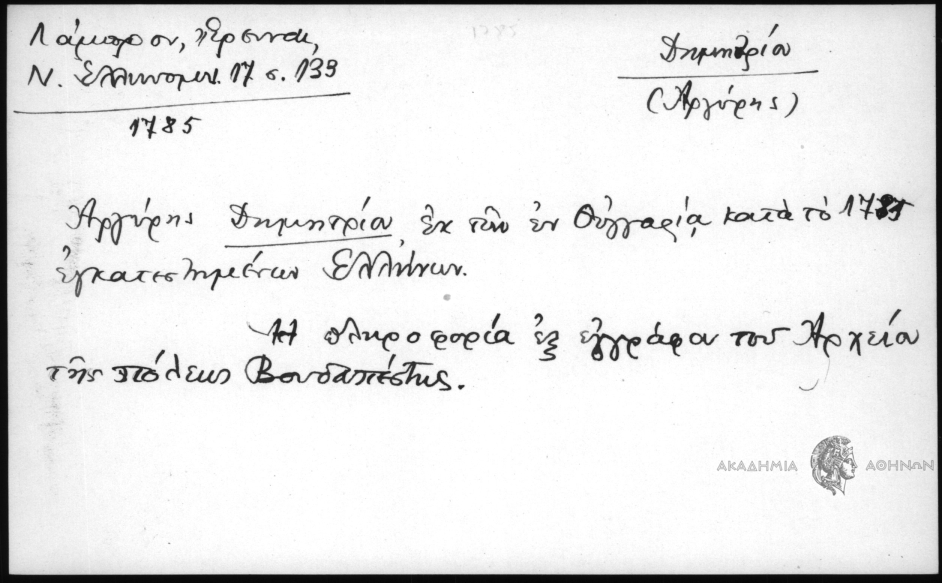 Λάμπρου, Ἔρευναι,
Ν. Ἑλληνομν. 17 σ. 139
1785
Δημητρίου
(Ἀργύρης)
Ἀργύρης Δημητρίου, ἐκ τῶν ἐν Οὑγγαρίᾳ κατὰ τὸ 1785
ἐγκατεστημένων Ἑλλήνων.
Ἡ πληροφορία ἐξ ἐγγράφου τοῦ Ἀρχείου
τῆς πόλεως Βουδαπέστης.
ΑΚΑΔΗΜΙΑ ΑΘΗΝΩΝ